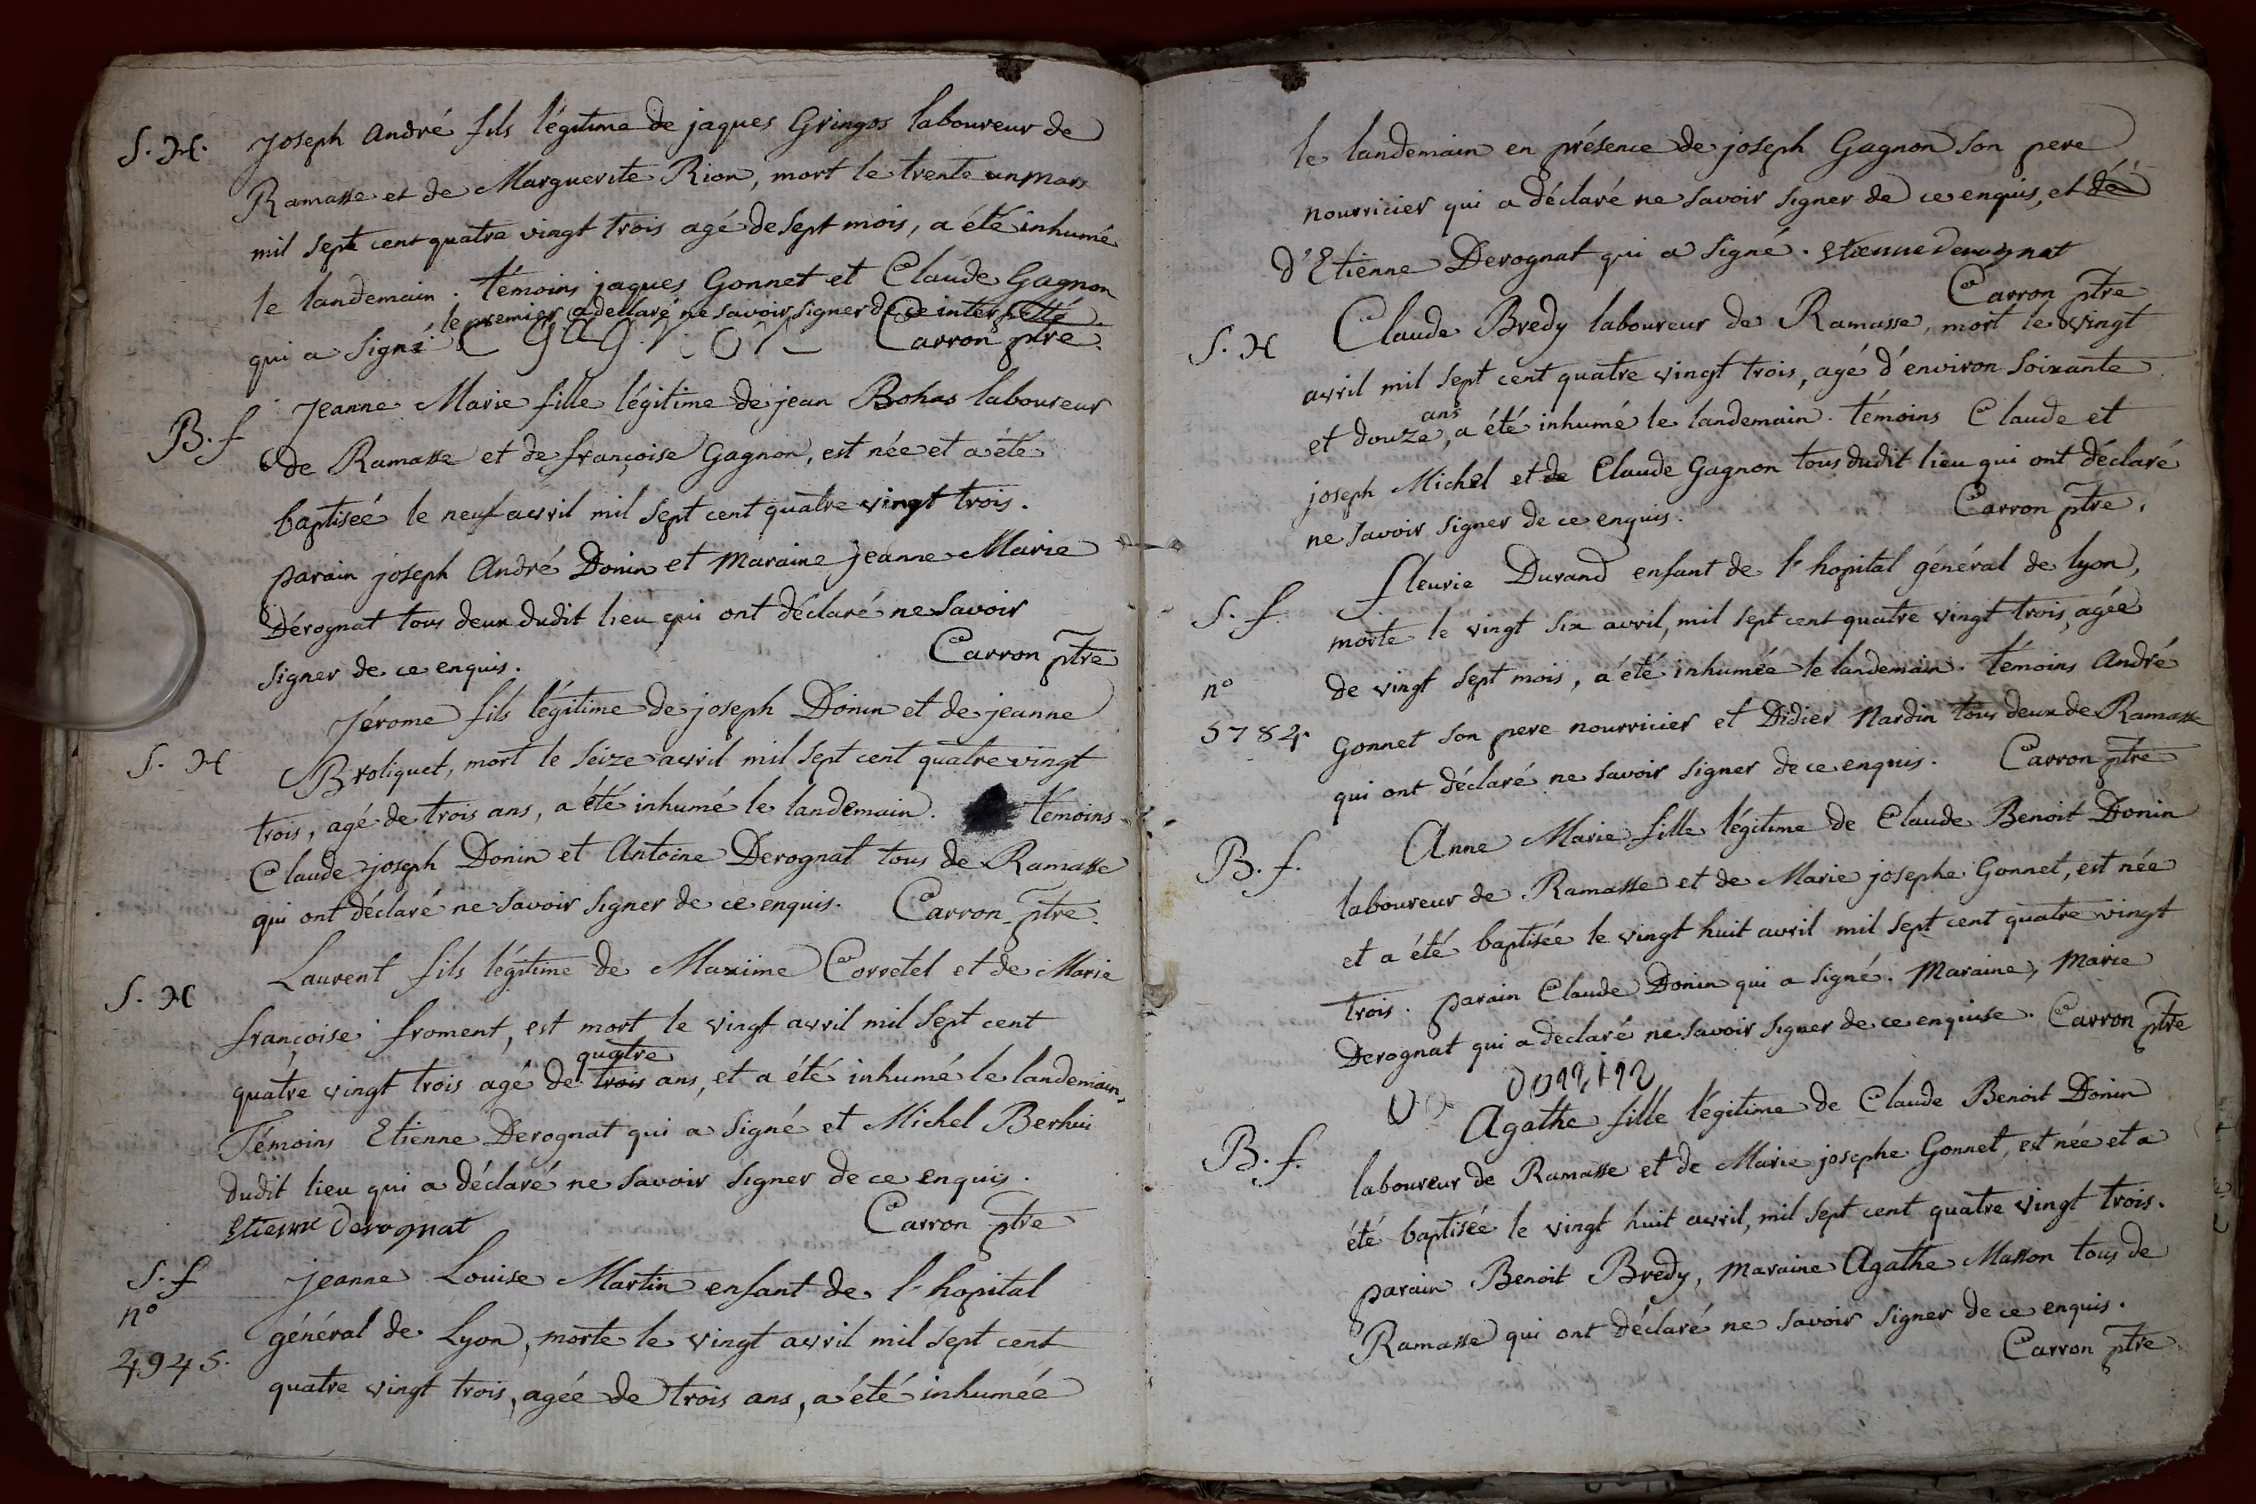 S. H. Joseph André fils légitime de jaques Gringos laboureur de
Ramasse et de Marguerite Rion, mort le trente un mars
mil sept cent quatre vingt trois agé de sept mois, a été inhumé
le landemain. témoins jaques Gonnet et Claude Gagnon
le premier a declaré ne savoir signer de ce inter
qui a signé C gagnon Carron ptre.
B. f Jeanne Marie fille légitime de jean Bohas laboureur
de Ramasse et de françoise Gagnon, est née et a été
baptiseé le neuf avril mil sept cent quatre vingt trois.
parain joseph André Donin et maraine jeanne Marie
Dérognat tous deux dudit lieu qui ont déclaré ne savoir
signer de ce enquis. Carron ptre
Jérome fils légitime de joseph Donin et de jeanne
S. H Broliquet, mort le seize avril mil sept cent quatre vingt
trois, agé de trois ans, a été inhumé le landemain. témoins
Claude joseph Donin et Antoine Derognat tous de Ramasse
qui ont déclaré ne savoir signer de ce enquis. Carron ptre.
Laurent fils légitime de Maxime Corretel et de Marie
S. H françoise froment, est mort le vingt avril mil sept cent
quatre
quatre vingt trois agé de trois ans, et a été inhumé le landemain.
Témoins Etienne Derognat qui a signé et Michel Berhui
dudit lieu qui a déclaré ne savoir signer de ce enquis.
Etienne derognat Carron ptre
S. f Jeanne Louise Martin enfant de l'hopital
n°
général de Lyon, morte le vingt avril mil sept cent
4945.
quatre vingt trois, agée de trois ans, a été inhumée
le landemain en présence de joseph Gagnon son pere
nourricier qui a déclaré ne savoir signer de ce enquis, et de
d'Etienne Derognat qui a signé. etienne derognat
Carron ptre
S. H Claude Bredy laboureur de Ramasse, mort le vingt
avril mil sept cent quatre vingt trois, agé d'environ soixante
ans
et douze, a été inhumé le landemain. témoins Claude et
joseph Michel et de Claude Gagnon tous dudit lieu qui ont déclaré
ne savoir signer de ce enquis. Carron ptre.
S. f. fleurie Durand enfant de l'hopital général de lyon,
morte le vingt six avril, mil sept cent quatre vingt trois, agée
n° de vingt sept mois, a été inhumée le landemain. témoins André
5784. Gonnet son pere nourricier et Didier Nardin tous deux de Ramasse
qui ont déclaré ne savoir signer de ce enquis. Carron ptre
B. f. Anne Marie fille légitime de Claude Benoit Donin
laboureur de Ramasse et de Marie josephe Gonnet, est née
et a été baptisée le vingt huit avril mil sept cent quatre vingt
trois. parain Claude Donin qui a signé. Maraine, Marie
Derognat qui a declaré ne savoir signer de ce enquise. Carron ptre
donin
B. f. Agathe fille légitime de Claude Benoit Donin
laboureur de Ramasse et de Marie josephe Gonnet, est née et a
été baptisée le vingt huit avril, mil sept cent quatre vingt trois.
parain Benoit Bredy, maraine Agathe Masson tous de
Ramasse qui ont déclaré ne savoir signer de ce enquis.
Carron ptre.